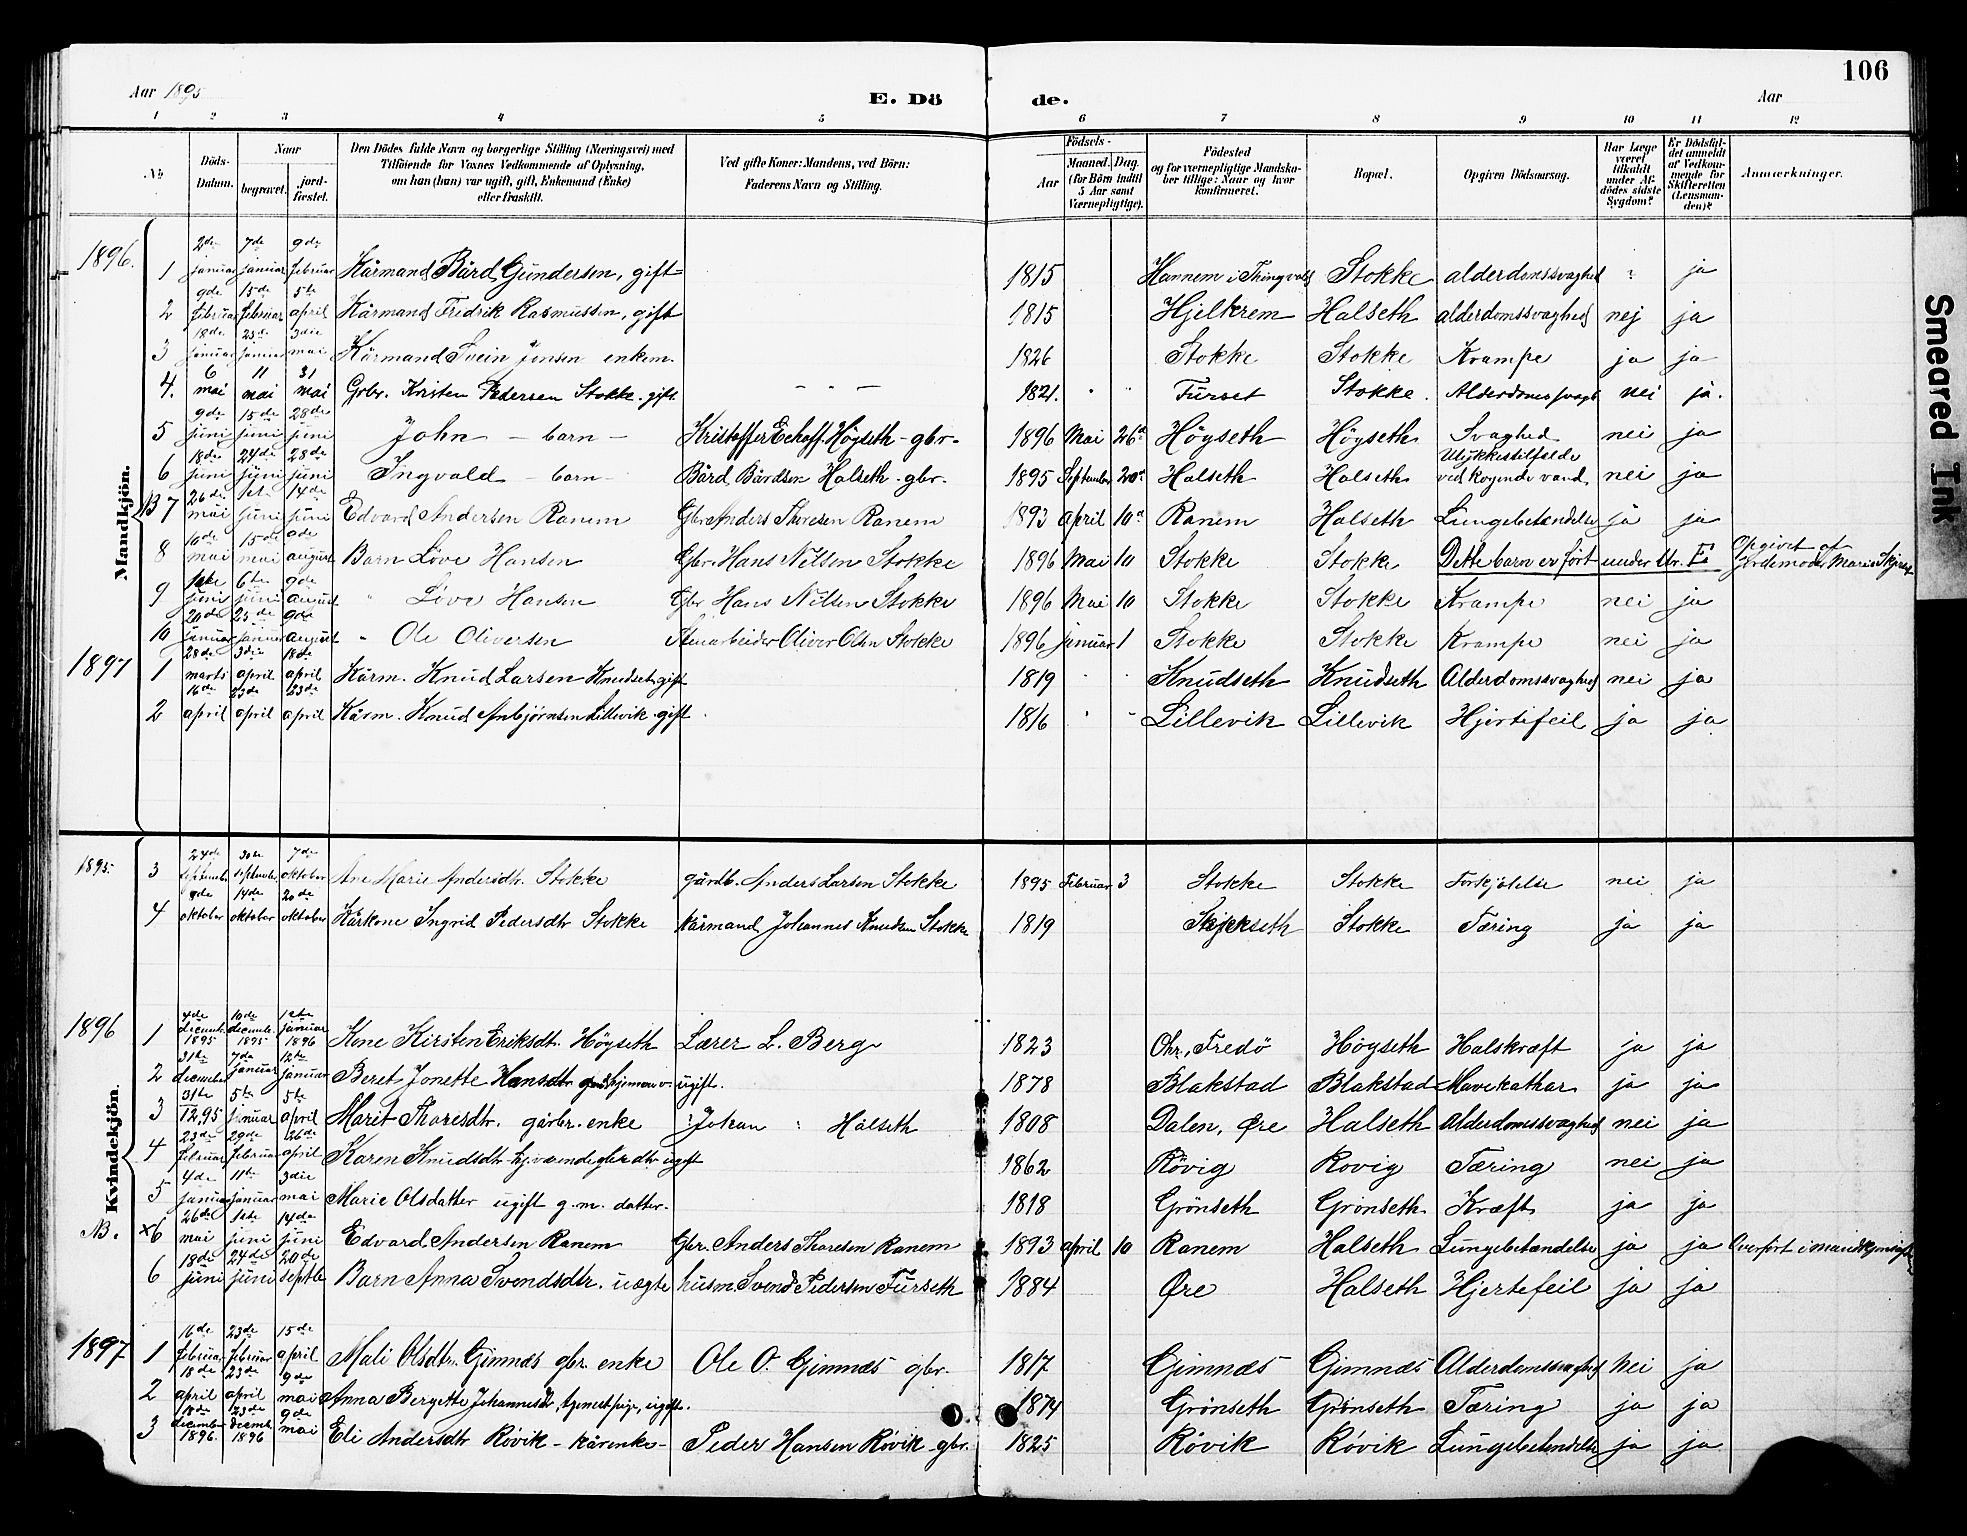 106
Aar 1895
E. Dö de.
Aar
1 2 3 4 5 6 7 8 9 10 11 12
No. Döds-Datum. Naar begravet. jordfæstet. Den Dödes fulde Navn og borgerlige Stilling (Næringsvei) med Tilföiende for Voxnes Vedkommende af Oplysning, om han (hun) var ugift, gift, Enkemand (Enke) eller fraskilt. Ved gifte Koner: Mandens, ved Börn: Faderens Navn og Stilling. Födsels- Aar Maaned. Dag. (for Börn indtil 5 Aar samt Værnepligtige). Födested og for værnepligtige Mandskaber tillige: Naar og hvor konfirmeret. Bopæl. Opgiven Dödsaarsag. Har Læge været tilkaldt under Afdödes sidste Sygdom? Er Dödsfaldet anmeldt af Vedkommende for Skifteretten (Lensmanden)? Anmærkninger.
Mandkjön.
1896. 1 2de januar 7de januar 9de februar Kårmand Bård Gundersen, gift 1815 Hannem i Thingvold Stokke alderdomssvaghed ja
2 9de februar 15de februar 5te april Kårmand Fredrik Rasmussen, gift 1815 Hjelkrem Halseth alderdomssvaghed nej ja
3 18de januar 23de januar 3die mai Kårmand Svein Jensen enkem. 1826 Stokke Stokke Krampe ja ja
4. 6 mai 11 mai 31 mai Gbr. Kristen Pedersen Stokke. gift - " - 1821. " " Furset Stokke. Alderdomssvagh nei ja.
5 9de juni 15de juni 28de juni John - barn - Kristoffer Echoff Höyseth - gbr. 1896 Mai 26de Höyseth Höyseth Svaghed nei ja
6 18de juni 24de juni 28de juni Ingvald - barn - Bård Bårdsen Halseth - gbr. 1895 September 20de Halseth Halseth Ulykkestilfælde ved kogende vand nei ja
7 26de mai 1ste juni 14de juni Edvard Andersen Ranem Gbr Anders Thoresen Ranem 1893 april 10de Ranem Halseth Lungebetændelse ja ja
8 10de mai 15de mai 9de august Barn Löve Hansen Gbr. Hans Nilsen Stokke 1896 Mai 10 Stokke Stokke Dette barn er fört under litr. E Opgivet af Gjordemoder Marie
9 1ste juni 6te juni 9de august " Löve Hansen Gbr Hans Nilsen Stokke 1896 Mai 10 Stokke Stokke Krampe nei ja
10 20de januar 25de januar 9de august " Ole Oliversen Stenarbeider Oliver Olsen Stokke 1896 januar 1 Stokke Stokke Krampe nei ja
1897 1 28de marts 3die april 18de april Kårm. Knud Larsen Knudseth gift 1819 Knudseth Knudseth Alderdomssvaghed nei ja
2 16de april 23de april 23de april Kårm. Knud Anbjørnsen Lillevik. gift. 1816 Lillevik Lillevik Hjertefeil ja ja
Kvindekjön
1895. 3 24de september 30te september 7de oktober Ane Marie Andersdtr. Stokke gårdb. Anders Larsen Stokke 1895 Februar 3 Stokke Stokke Forkjølelse nei ja
4 8de oktober 14de oktober 20de oktober Kårkone Ingrid Pedersdtr Stokke kårmand Johannes Knudsen Stokke 1819 Stokke Tæring ja ja
1896 1 4de decembr. 1895 10de decembr. 1895 12te januar 1896 Kone Kirsten Eriksdtr. Höyseth Lærer L. Berg 1823 Ohr, Fredö Höyseth Halskræft ja ja
2 31te december 7de januar 12te januar Beret Jonette Hansdtr hjemmev. ugift. 1878 Blakstad Blakstad Mavekathar ja ja
3 31te 12,95 5te januar 5te april Marit Tharesdtr. gårbr. enke Johan Halseth 1808 Dalen, Øre Halseth Alderdomssvaghed nei ja
4 23de februar 29de februar 26de april Karen Knudsdtr hj.værende gbr dtr ugift 1862 Rövig Rovig Tæring nei ja
5 4de januar 11te januar 3die mai Marie Olsdatter ugift g.m. datter. 1818 Grönseth Grönseth Kræft ja ja
NB. ×6 26de mai 1ste juni 14de juni Edvard Andersen Ranem Gbr. Anders Tharesen Ranem 1893 april 10 Ranem Halseth Lungebetændelse ja ja Overfört i mandkjönnet
6 18de juni 24de juni 20de septbr Barn Anna Svendsdtr. uægte husm. Svend Pedersen Furseth 1884 Øre Halseth Hjertefeil ja ja
1897 1 16de februar 23de februar 15de april Mali Olsdtr. Gimnæs gbr. enke Ole O. Gimnæs gbr. 1817 Gimnæs Gimnæs Alderdomssvaghed Nei ja
2 18de april 23de april 9de mai Anna Bergette Johannesdtr, tjenestpige, ugift. 1874 Grönseth Grönseth Tæring ja ja
3 18de december 1896. 23de decembr 1896 9de mai Eli Andersdtr Rövik - kårenke - Peder Hansen Rövik gbr. 1825 Rövik Rövik Lungebetændelse ja ja
Smeared Ink